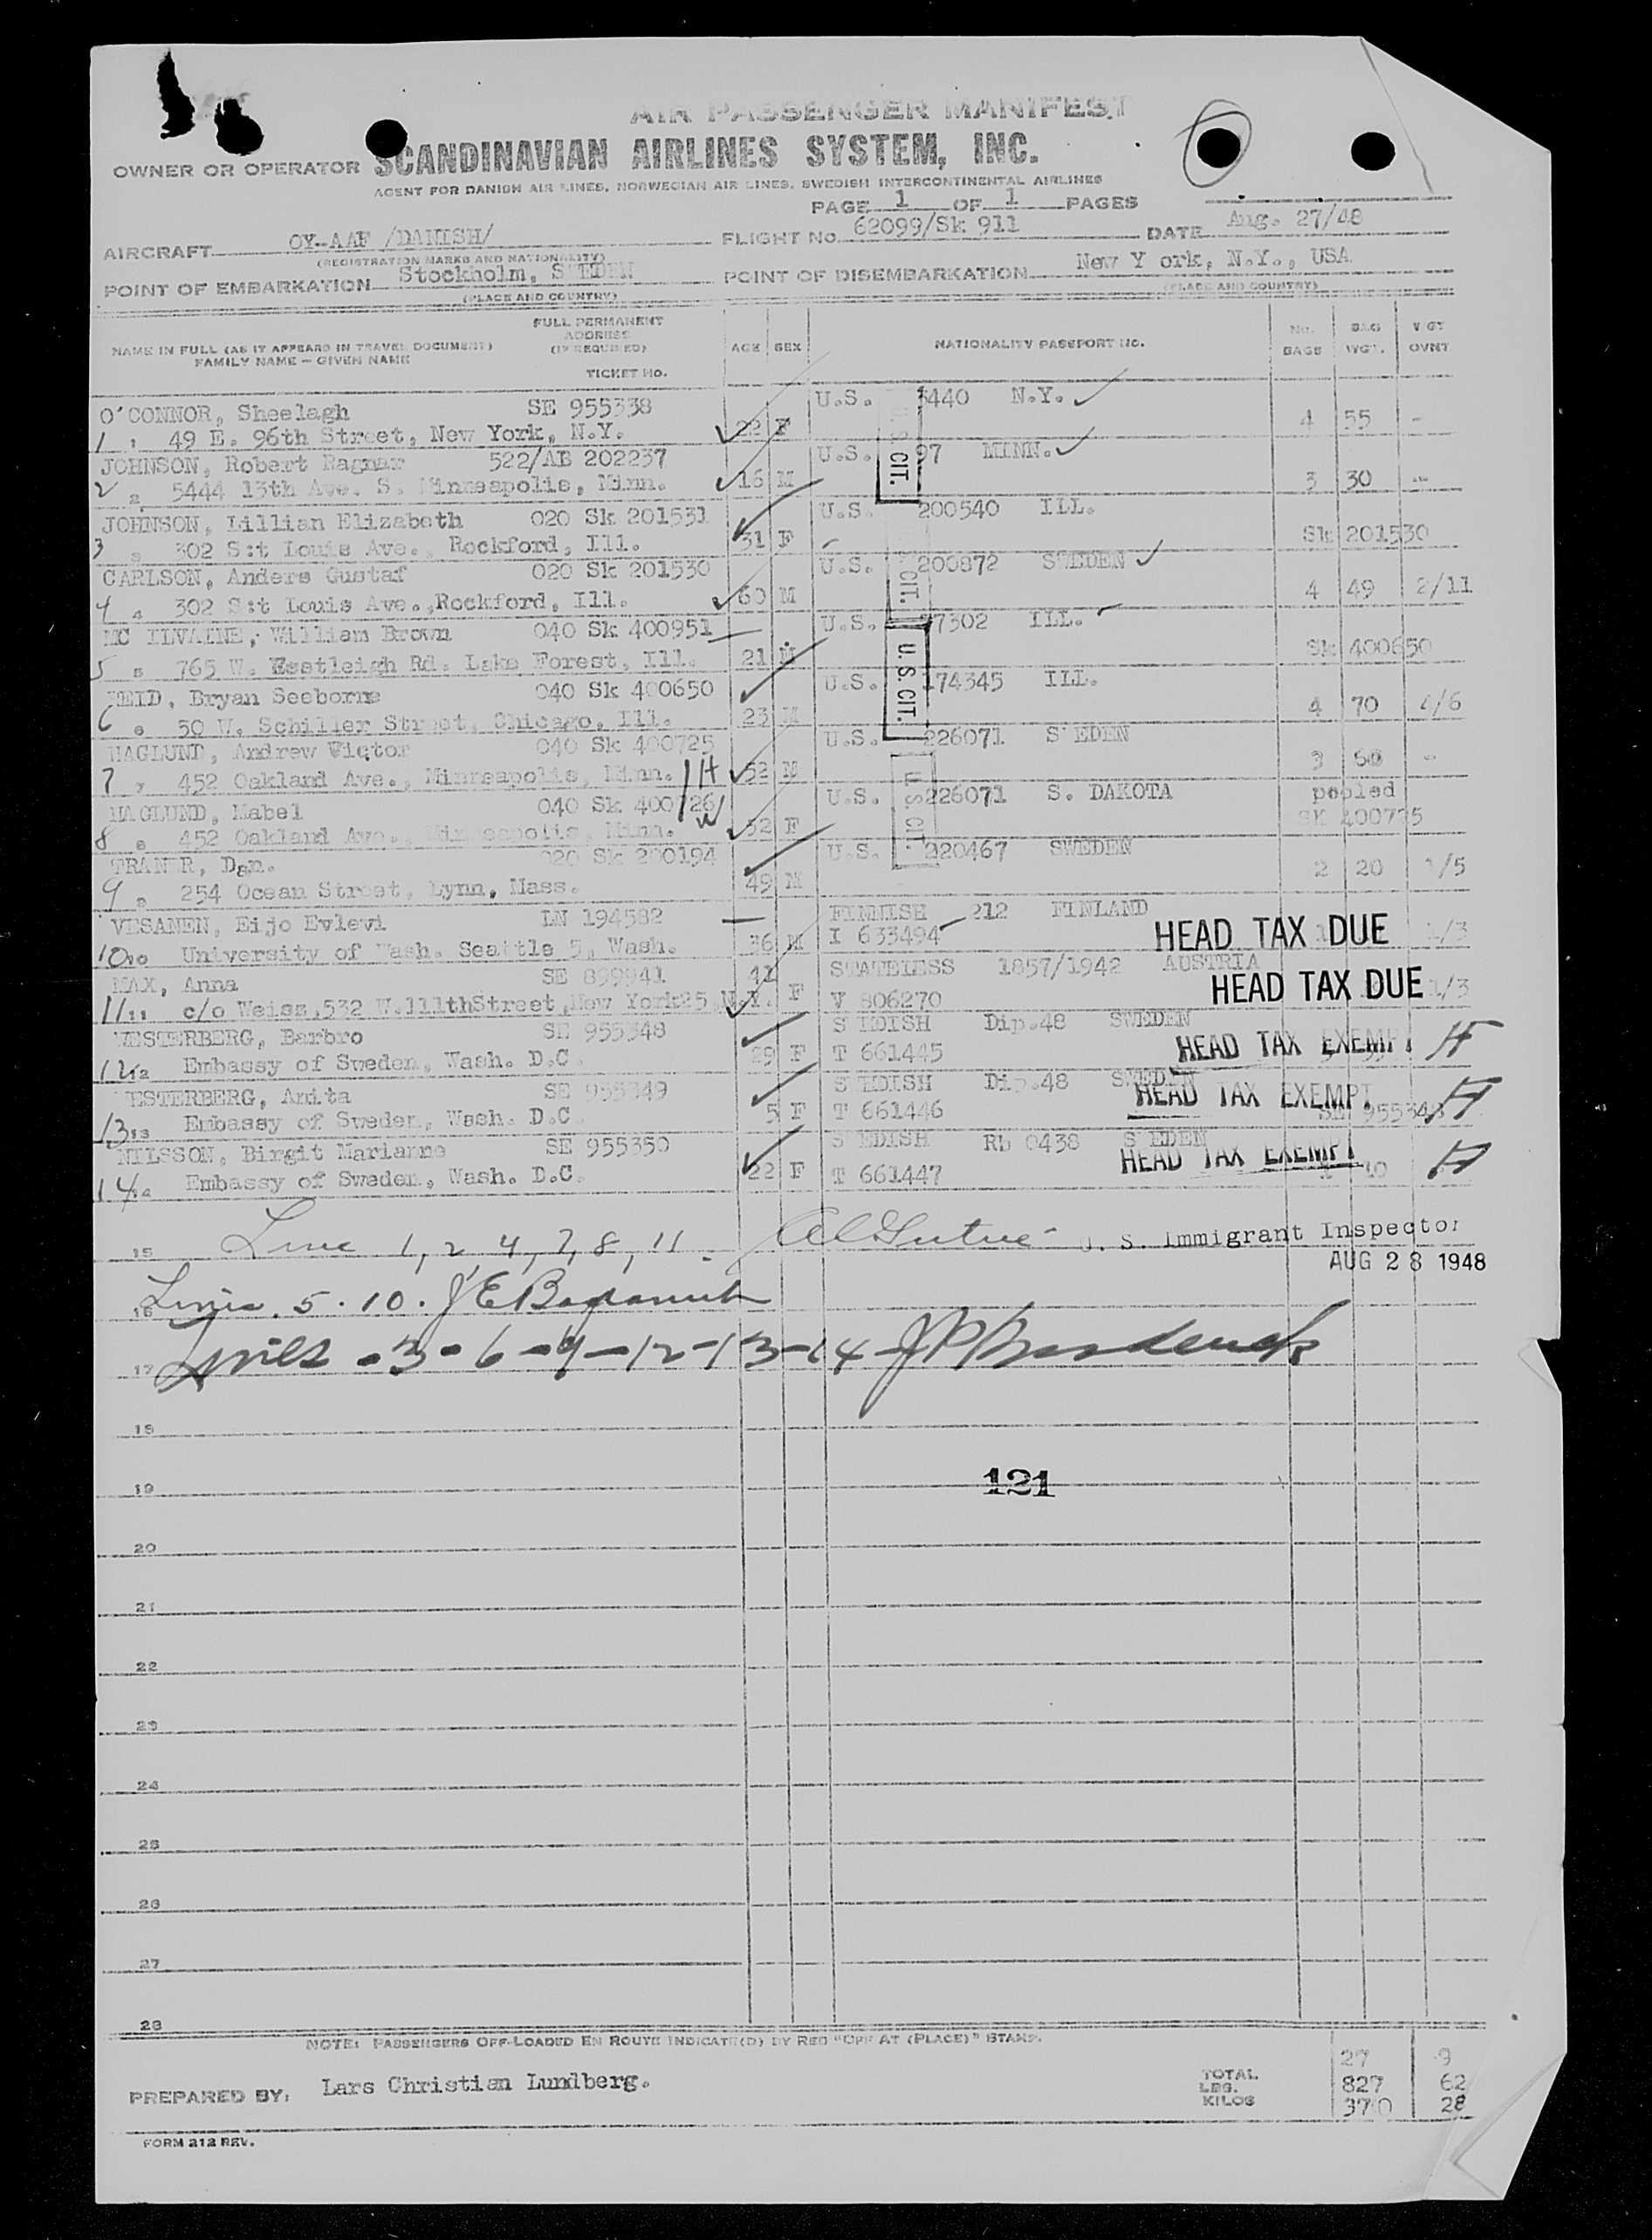 AIR PASSENGER MANIFEST
OWNER OR OPERATOR SCANDINAVIAN AIRLINES SYSTEM, INC.
AGENT FOR DANISH AIR LINES, NORWEGIAN AIR LINES, SWEDISH INTERCONTINENTAL AIRLINES
PAGE 1 OF 1 PAGES
AIRCRAFT OY-AAF /DANISH/ FLIGHT No. 62099/Sk 911 DATE Aug. 27/48
(REGISTRATION MARKS AND NATIONALITY)
POINT OF EMBARKATION Stockholm, S EDEN POINT OF DISEMBARKATION New Y ork, N.Y., USA
(PLACE AND COUNTRY) (PLACE AND COUNTRY)
NAME IN FULL (AS IT APPEARS IN TRAVEL DOCUMENT) FAMILY NAME — GIVEN NAME FULL PERMANENT ADDRESS (IF REQUIRED) TICKET No. AGE SEX NATIONALITY PASSPORT No. No. BAGS BAG WGT. OVNT
O'CONNOR, Sheelagh SE 955338 U.S. 3440 N.Y.
1 49 E. 96th Street, New York, N.Y. 22 F 4 55 -
JOHNSON, Robert Ragnar 522/AB 202237 U.S. 97 MINN.
2 2 5444 13th Ave. S. Minneapolis, Minn. 16 M 3 30 -
JOHNSON, Lillian Elizabeth 020 Sk 201531 U.S. 200540 ILL.
3 302 S:t Louis Ave., Rockford, Ill. 31 F Sk 201530
CARLSON, Anders Gustaf 020 Sk 201530 U.S. 200872 SWEDEN
4 302 S:t Louis Ave.,Rockford, Ill. 60 M 4 49 2/11
MC ILVAINE, William Brown 040 Sk 400951 U.S. 77302 ILL.
5 765 W. Westleigh Rd. Lake Forest, Ill. 21 M Sk 400650
REID, Bryan Seeborne 040 Sk 400650 U.S. 174345 ILL.
6 50 W. Schiller Street, Chicago, Ill. 23 M 4 70 4/6
HAGLUND, Andrew Victor 040 Sk 400725 U.S. 226071 S EDEN
7 452 Oakland Ave., Minneapolis, Minn. H 52 M 3 -
HAGLUND, Mabel 040 Sk 400726 U.S. 226071 S. DAKOTA pooled
8 452 Oakland Ave., Minneapolis, Minn. W 52 F SK 400725
TRANER, Dan. 020 Sk 200194 U.S. 220467 SWEDEN
9 254 Ocean Street, Lynn, Mass. 49 M 2 20 1/5
U.S. CIT.
CIT.
U.S. CIT.
U.S. CIT.
VESANEN, Eijo Evlevi LN 194582 FINNISH 212 FINLAND
10 10 University of Wash. Seattle 5, Wash. 36 M I 633494 HEAD TAX DUE 1/3
MAX, Anna SE 899941 41 STATELESS 1857/1942 AUSTRIA
11 11 c/o Weisz,532 W.111thStreet,New York25 N.Y. F V 806270 HEAD TAX DUE 1/3
WESTERBERG, Barbro SE 955348 S EDISH Dip.48 SWEDEN
12 12 Embassy of Sweden, Wash. D.C. 29 F T 661445 HEAD TAX EXEMPT H
ESTERBERG, Anita SE 955349 S EDISH Dip.48 SWEDEN
13 13 Embassy of Sweden, Wash. D.C 5 F T 661446 HEAD TAX EXEMPT SE 955348 H
NILSSON, Birgit Marianne SE 955350 S EDISH Rb 0438 S EDEN
14 Embassy of Sweden, Wash. D.C. 22 F T 661447 HEAD TAX EXEMPT H
15 Line 1, 2, 4, 7, 8, 11. U. S. Immigrant Inspector
AUG 28 1948
16 Lines. 5 · 10 .
17 Lines - 3 - 6 - 9 - 12 - 13 - 14
18
19 121
20
21
22
23
24
25
26
27
28
NOTE: PASSENGERS OFF-LOADED EN ROUTE INDICATE(D) BY RED "OFF AT (PLACE)" STAMP.
PREPARED BY: Lars Christian Lundberg.
TOTAL 27 9
LBS. 827 62
KILOS 370 28
FORM 212 REV.